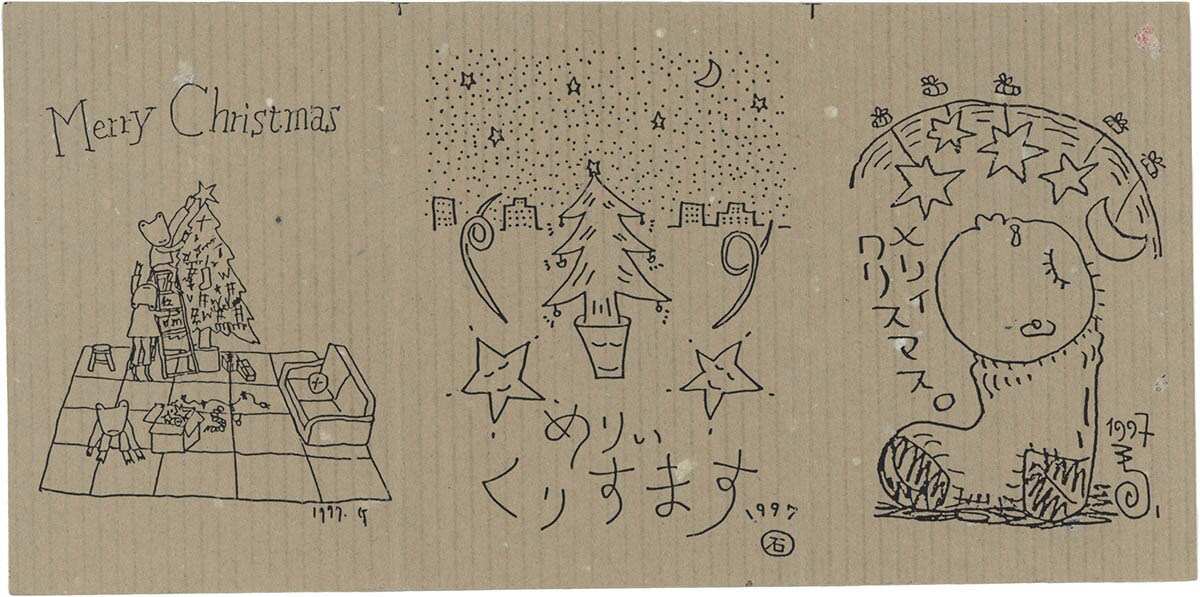 Merry Christmas
1997. G
めりぃ
くりすます
1997
石
メリィ
クリスマス。
1997